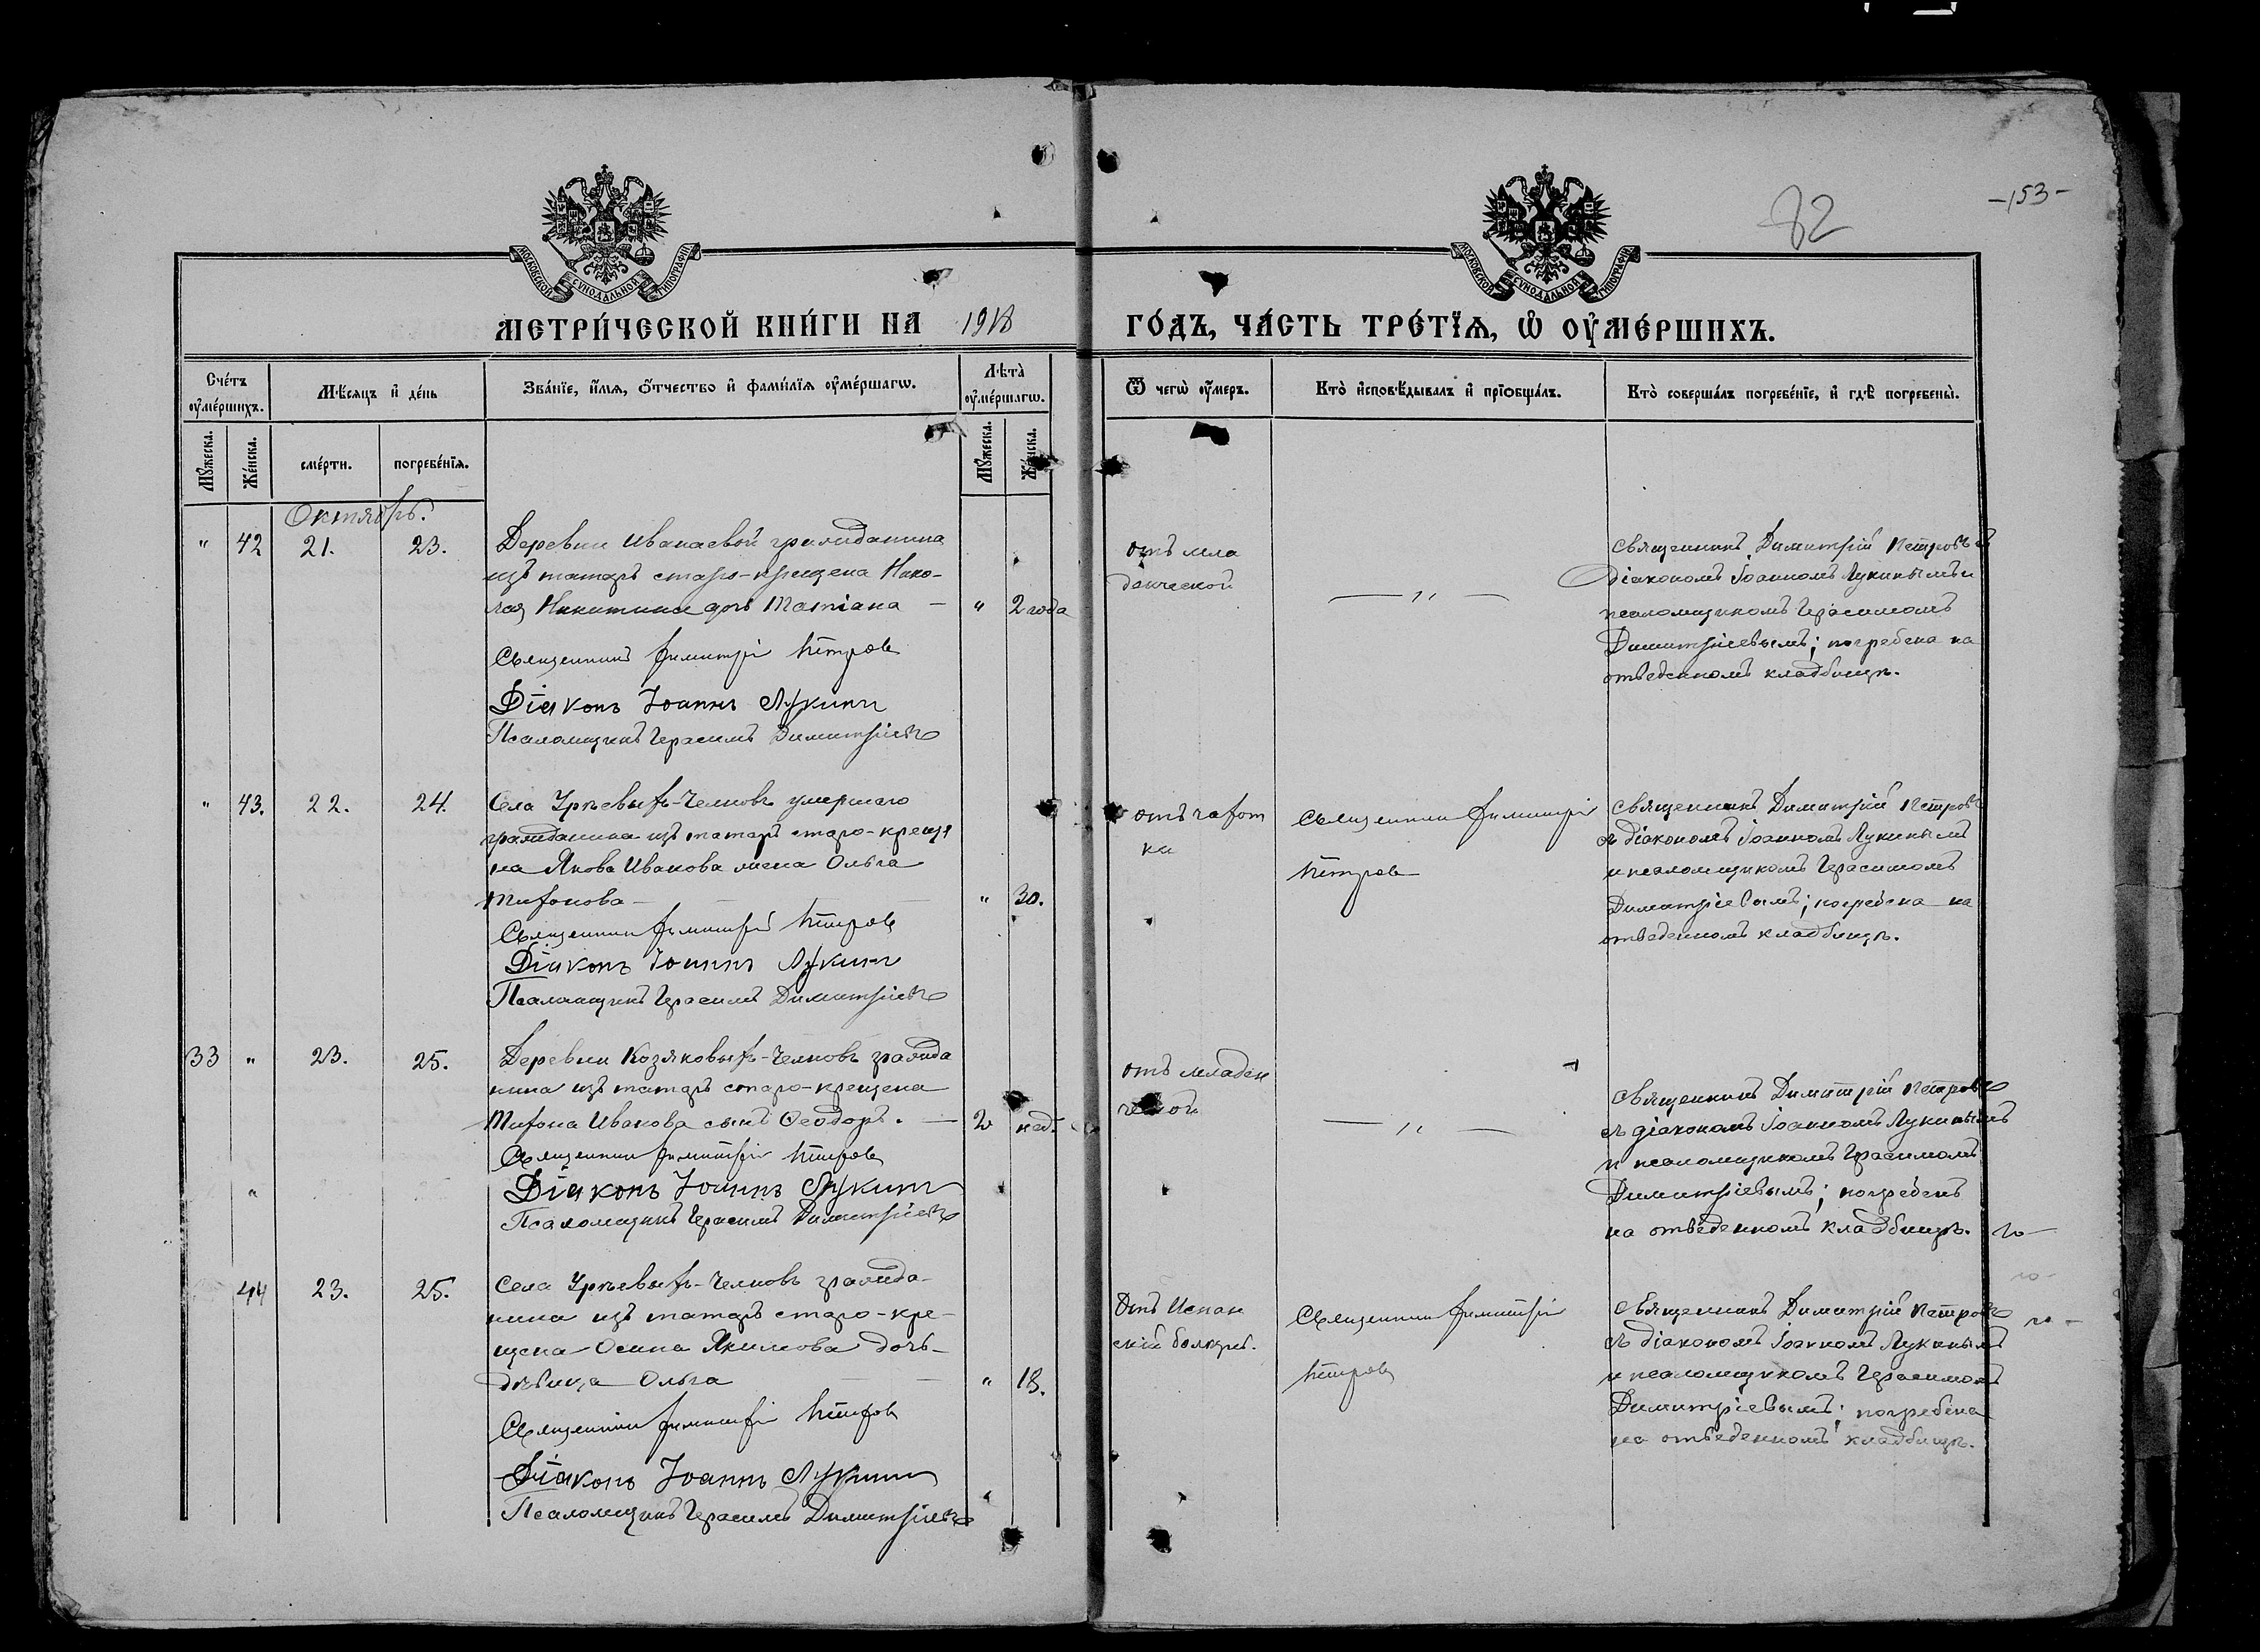 82
-153-
МОСКОВСКОЙ СУНОДАЛЬНОЙ ТИПОГРАФІИ
МОСКОВСКОЙ СУНОДАЛЬНОЙ ТИПОГРАФІИ
МЕТРИ́ЧЕСКОЙ КНИ́ГИ НА 1918 ГО́ДЪ, ЧА́СТЬ ТРЕ́ТЇѦ, Ѡ҆ ОУ҆МЕ́РШИХЪ.
Сче́тъ оу҆ме́ршихъ.
Мѣ́сѧцъ и҆ де́нь
Зва́нїе, и҆́мѧ, ѻ҆́тчество и҆ фами́лїѧ оу҆ме́ршагѡ.
Лѣта̀ оу҆ме́ршагѡ.
Ѿ чегѡ̀ оу҆́меръ.
Кто̀ и҆сповѣ́дывалъ и҆ прїѻбща́лъ.
Кто̀ соверша́лъ погребе́нїе, и҆ гдѣ̀ погребены̀.
Мꙋ́жеска.
Же́нска.
сме́рти.
погребе́нїѧ.
Мꙋ́жеска.
Же́нска.
Октябрь.
" 42 21. 23.
Деревни Иванаевой гражданина
изъ татаръ старо-крещена Нико-
лая Никитина дочь Татіана —
" 2 года
Священникъ Димитрій Петровъ
Діаконъ Іоаннъ Лукинъ
Псаломщикъ Герасимъ Димитріевъ
отъ мла
денческой
— " —
Священникъ Димитрій Петровъ съ
діакономъ Іоанномъ Лукинымъ и
псаломщикомъ Герасимомъ
Димитріевымъ; погребена на
отведенномъ кладбищѣ.
" 43. 22. 24.
Села Урѣевыхъ-Челновъ умершаго
гражданина изъ татаръ старо-креще
на Якова Иванова жена Ольга
Тифонова — " 30.
Священникъ Димитрій Петровъ
Діаконъ Іоаннъ Лукинъ
Псаломщикъ Герасимъ Димитріевъ
отъ чахот
ки
Священникъ Димитрій
Петровъ
Священникъ Димитрій Петровъ
съ діакономъ Іоанномъ Лукинымъ
и псаломщикомъ Герасимомъ
Димитріевымъ; погребена на
отведенномъ кладбищѣ.
33 " 23. 25.
Деревни Козяковыхъ-Челновъ гражда
нина изъ татаръ старо-крещена
Тифона Иванова сынъ Ѳеодоръ. —
2 нед.
Священникъ Димитрій Петровъ
Діаконъ Іоаннъ Лукинъ
Псаломщикъ Герасимъ Димитріевъ
"
отъ младен
ческой
— " —
Священникъ Димитрій Петровъ
съ діакономъ Іоанномъ Лукинымъ
и псаломщикомъ Герасимомъ
Димитріевымъ; погребенъ
на отведенномъ кладбищѣ.
44 23. 25.
Села Урѣевыхъ-Челновъ гражда-
нина изъ татаръ старо-кре-
щена Осипа Якимова дочь-
дѣвица Ольга — — " 18.
Священникъ Димитрій Петровъ
Діаконъ Іоаннъ Лукинъ
Псаломщикъ Герасимъ Димитріевъ
Отъ Испан
скій болѣзнь.
Священникъ Димитрій
Петровъ
Священникъ Димитрій Петровъ
съ діакономъ Іоанномъ Лукинымъ
и псаломщикомъ Герасимомъ
Димитріевымъ; погребена
на отведенномъ кладбищѣ.